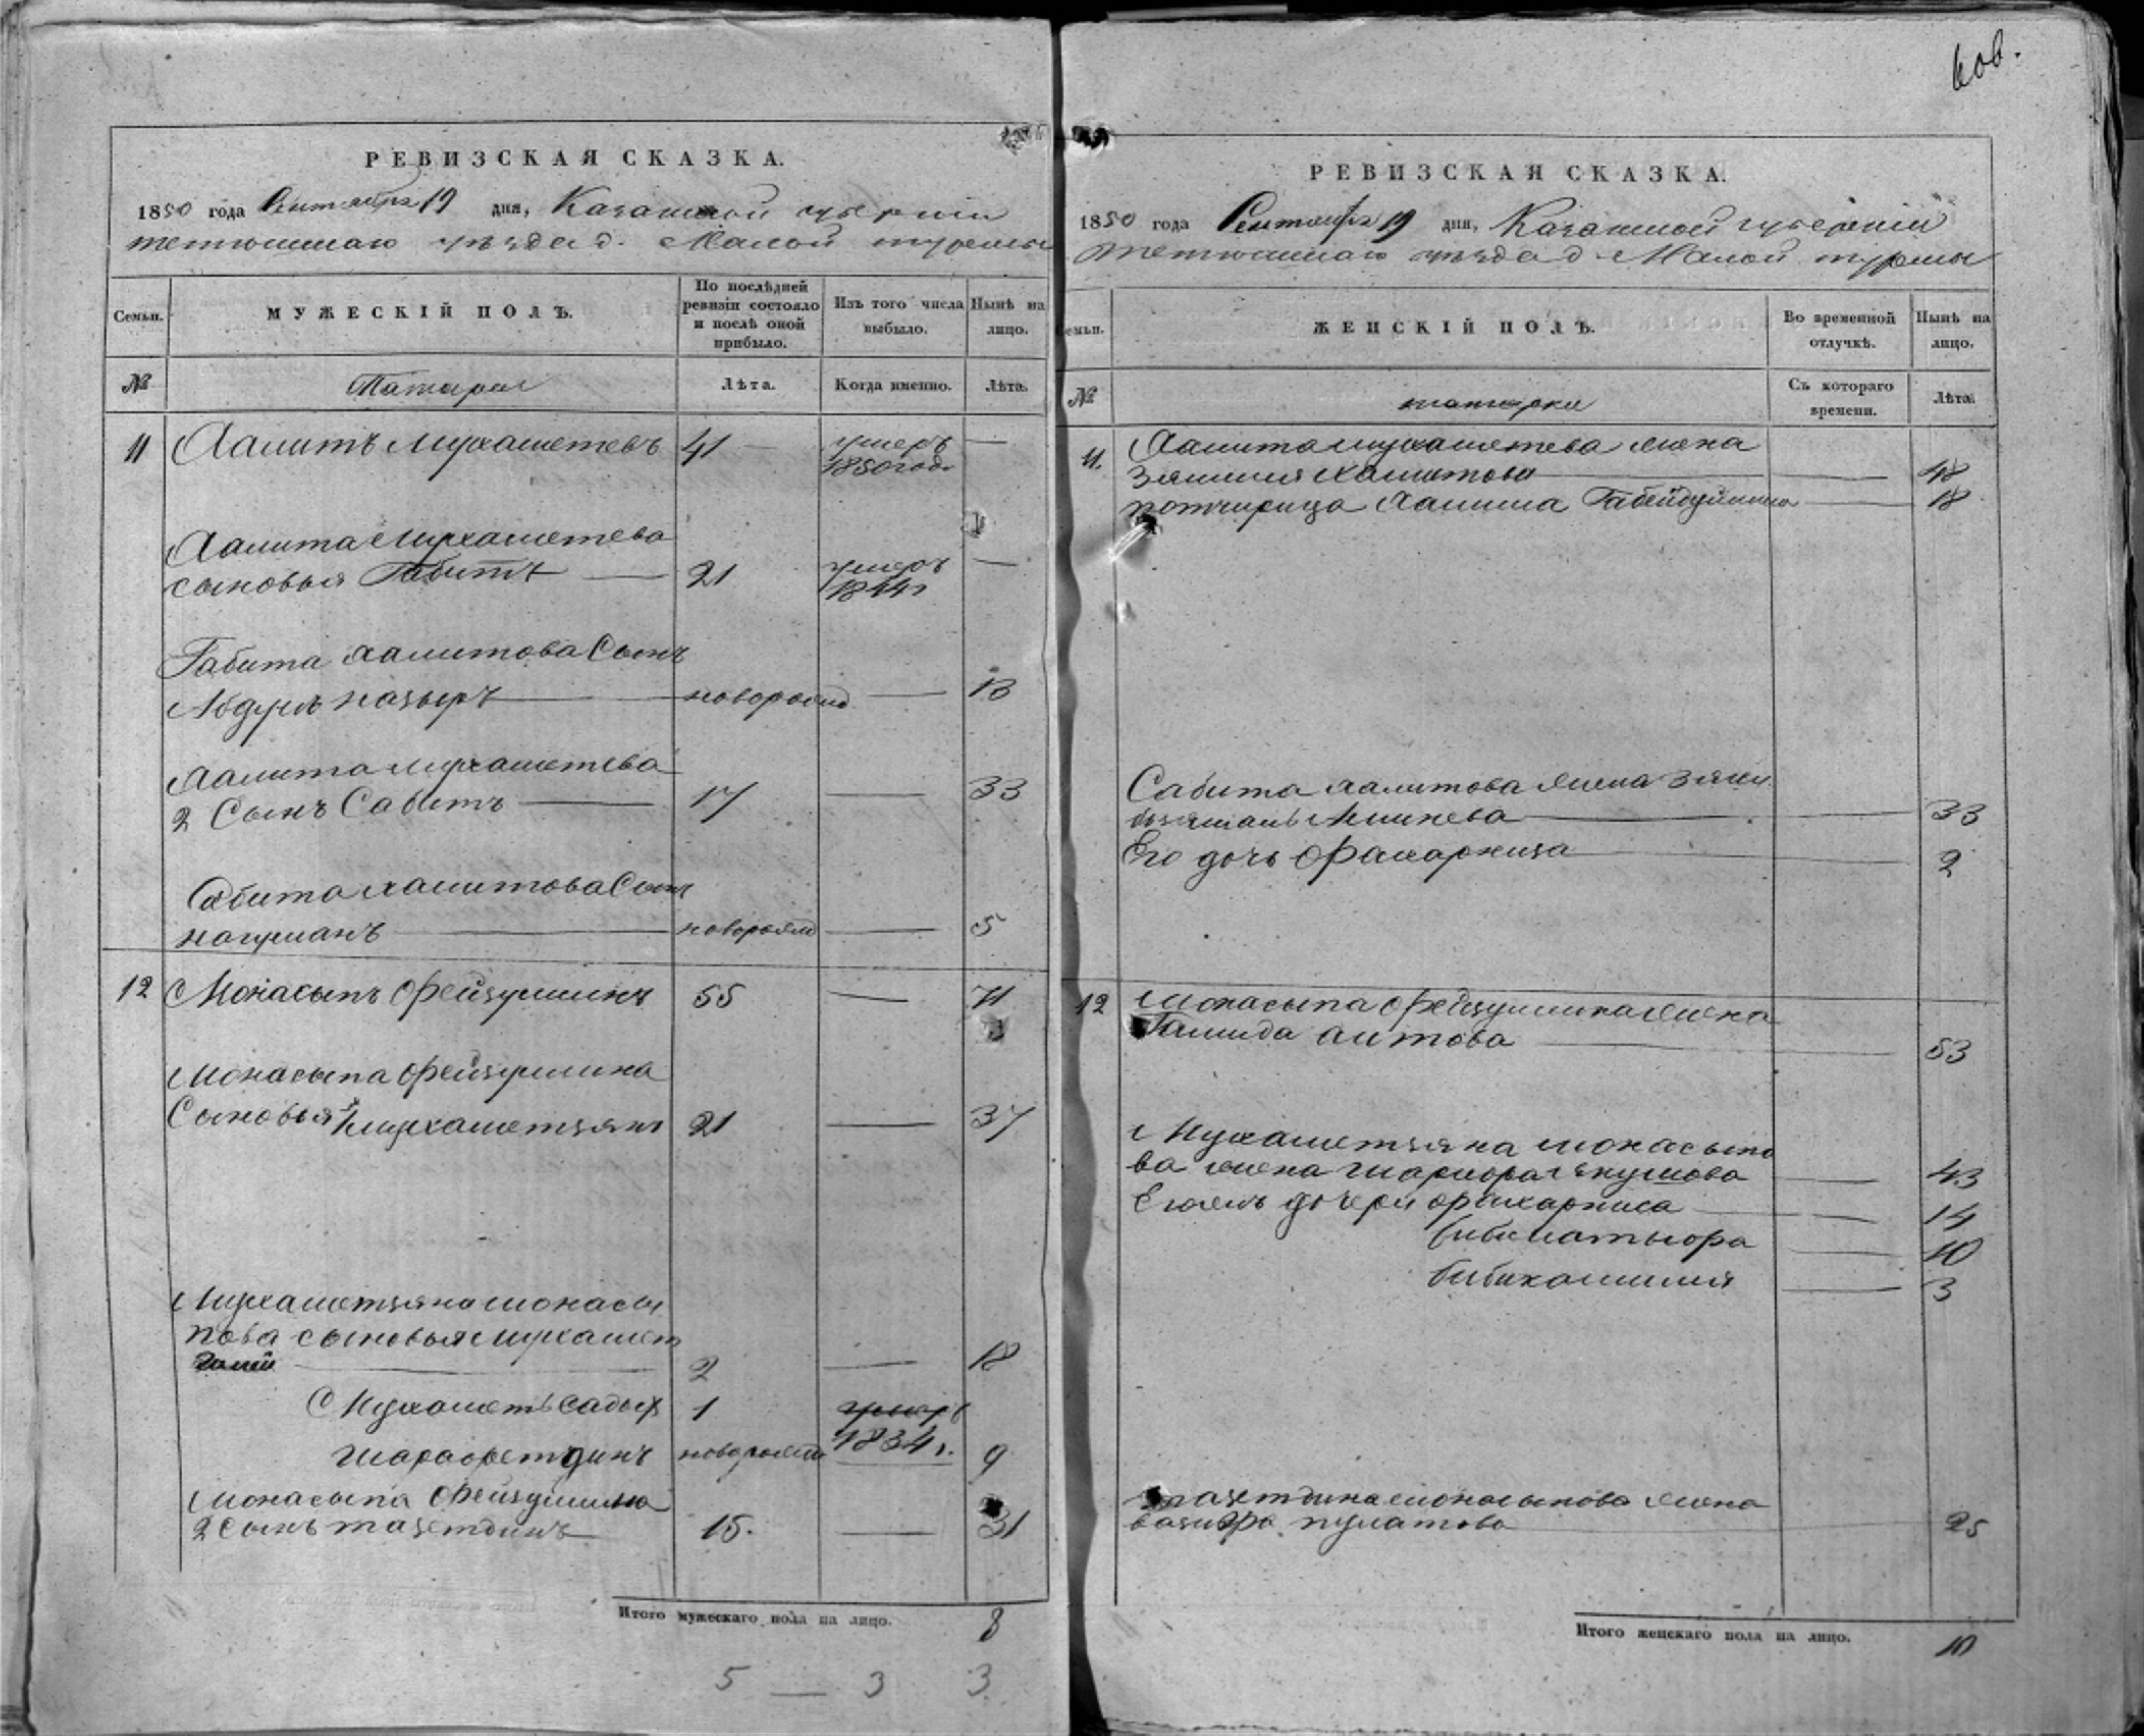 606.
РЕВИЗСКАЯ СКАЗКА.
1850 года Сентября 19 дня, Казанской губерніи
тетюшшаго уѣзда д. Малой турмы
Семьи.
МУЖЕСКІЙ ПОЛЪ.
По послѣдней ревизіи состояло и послѣ оной прибыло.
Изъ того числа выбыло.
Нынѣ на лицо.
№
Татары
Лѣта.
Когда именно.
Лѣта.
11 Халитъ Мухаметевъ 41 — умеръ 1850 года —
Халита Мухаметева
сыновья Габитъ — 21 умеръ 1844г —
Габита Халитова Сынъ
Абдулъ назыръ — новорожд — 13
Халита мухаметева
2 Сынъ Сабитъ — 17 — 33
Сабита халитова Сынъ
нагуманъ — новорожд — 5
12 Монасыпъ Фейзуллинъ 55 — 71
Монасыпа Фейзуллина
Сыновья 1 мухаметзянъ 21 — 37
Мухаметзяна монасы
пова сыновья мухамет
галей — 2 — 18
Мухаметь садых 1 умеръ 1834г.
шарафетдинъ новорожд — 9
Монасыпа Фейзуллина
2 сынъ тазетдинъ 15. — 31
Итого мужескаго пола на лицо. 8
5 — 3 3
РЕВИЗСКАЯ СКАЗКА.
1850 года Сентября 19 дня, Казанской губерніи
тетюшшаго уѣзда д. Малой турмы
Семьи.
ЖЕНСКІЙ ПОЛЪ.
Во временной отлучкѣ.
Нынѣ на лицо.
№
татарки
Съ котораго времени.
Лѣта.
11. Халита мухаметева жена
Хамитова — 48
Халита — 18
Сабита халитова жена
— 33
Его дочь Фахарниза — 2
12 Монасыпа Фейзуллина жена
Галида аитова — 53
Мухаметзяна монасыпо
ва жена Якупова — 43
Его же дочери фахарниса — 14
— 10
бибихалиля — 3
тазетдина монасыпова жена
пулатова — 25
Итого женскаго пола на лицо. 10